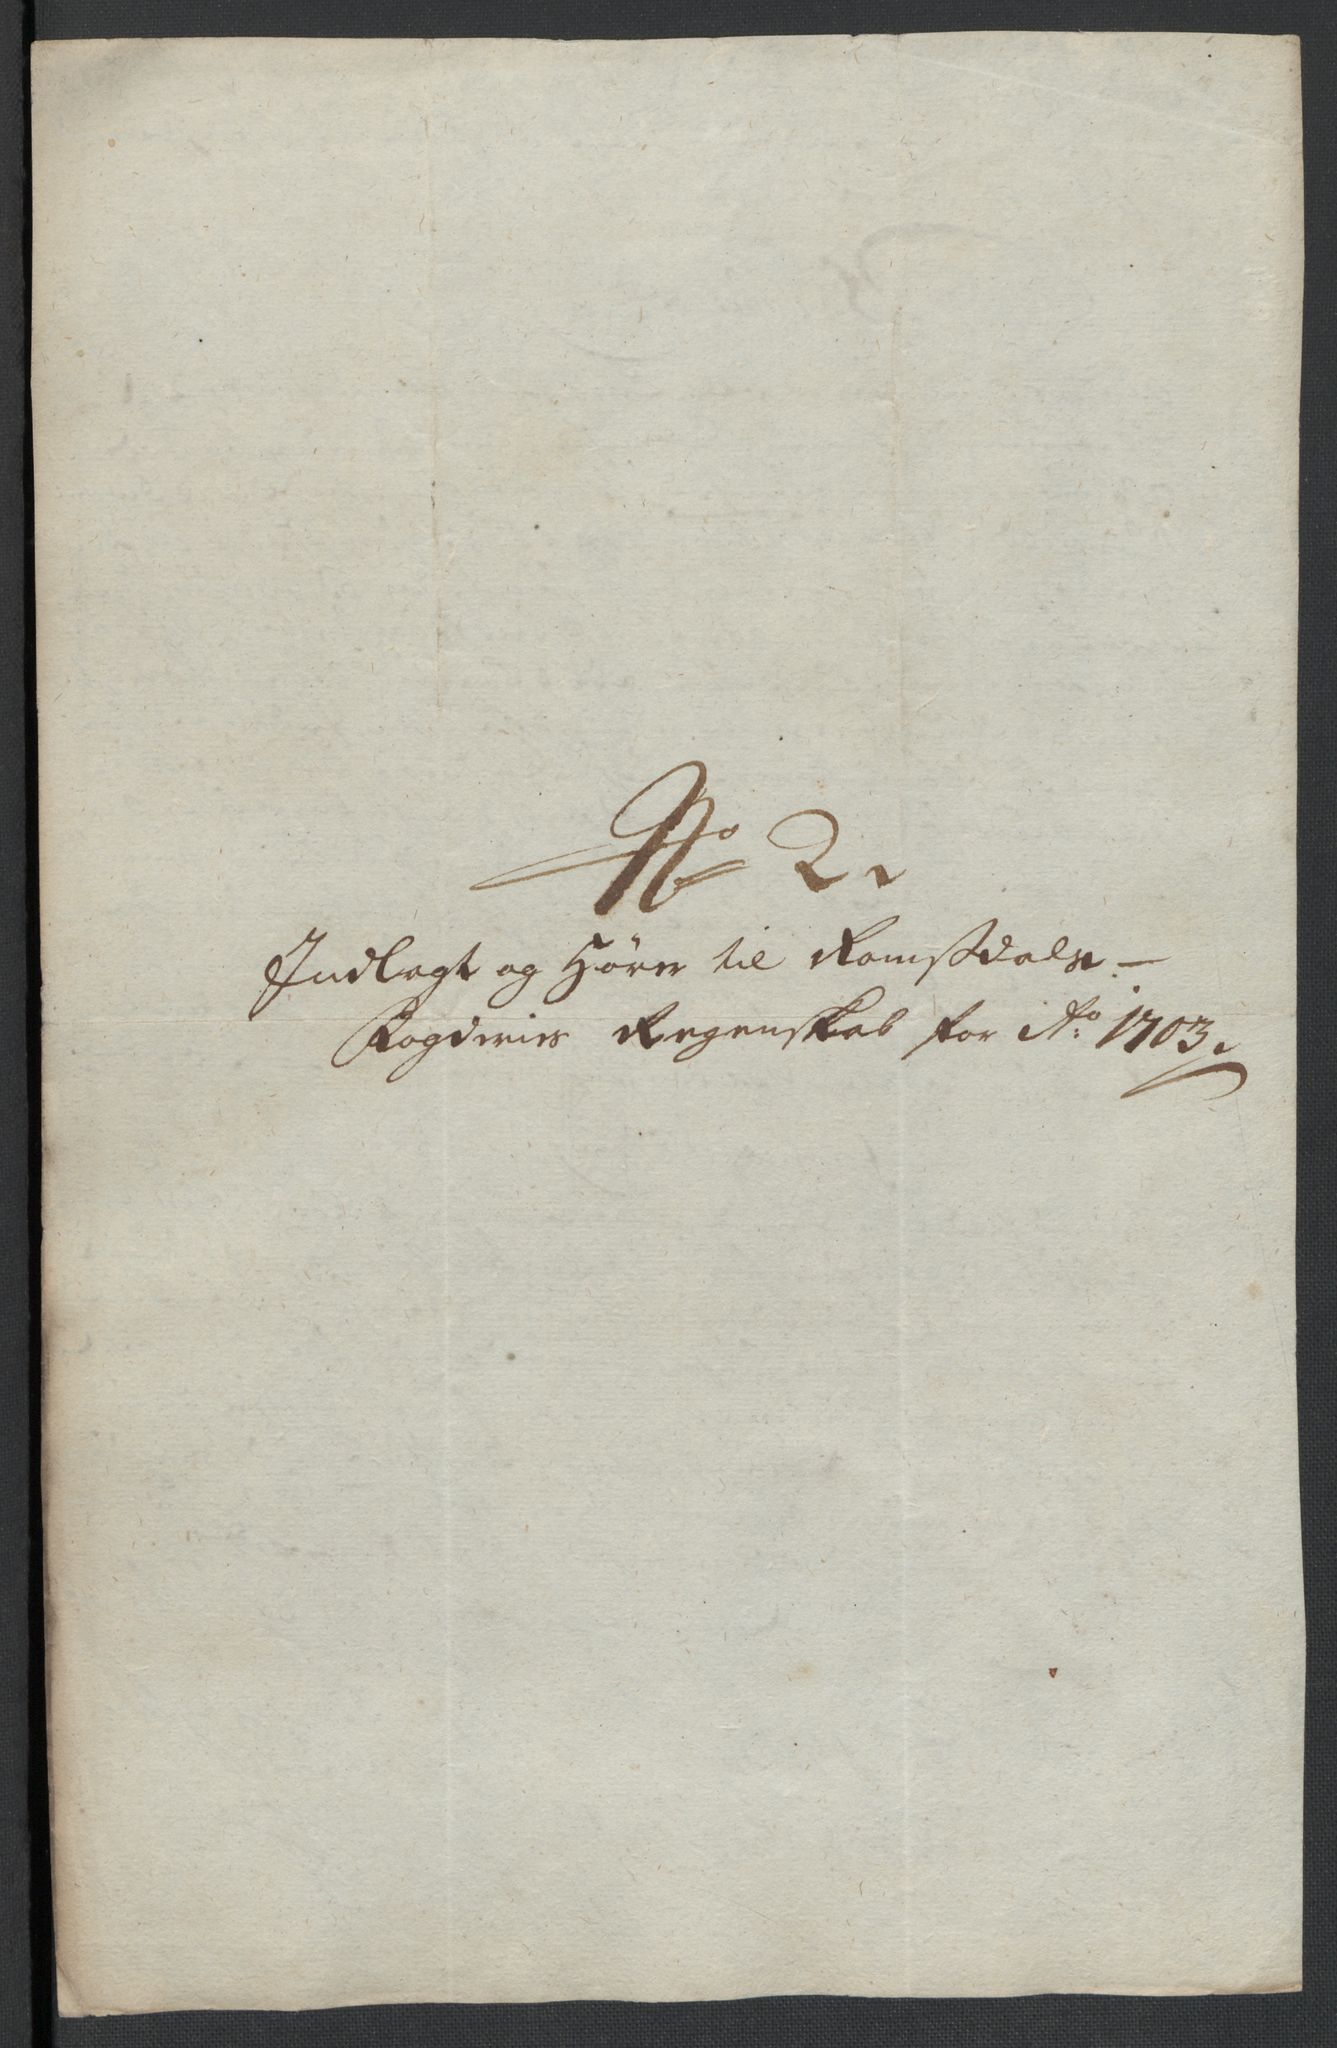 No 2.
Indlagt og Hører til Romsdals
Fogderies Regenskab for Ao 1703.